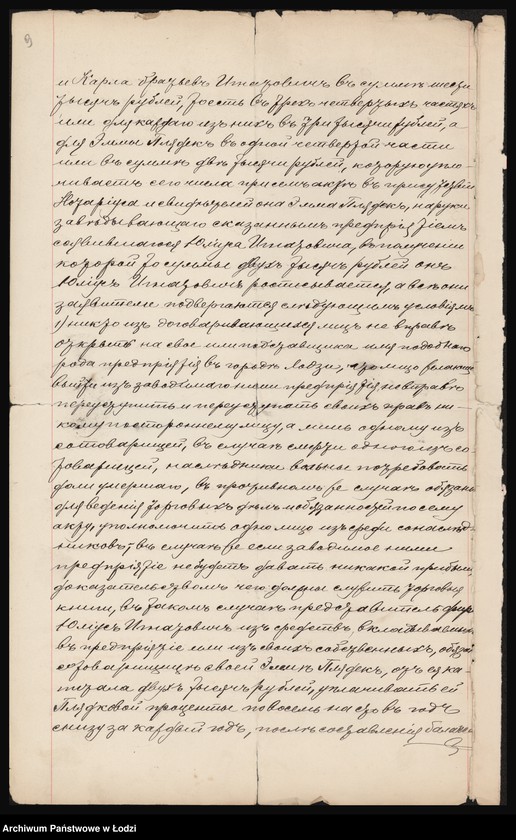 9
и Карла братьевъ Штазовичъ въ суммѣ шести
тысячъ рублей, тоесть въ трехъ четвертыхъ частяхъ
или для каждаго изъ нихъ въ три тысячи рублей, а
для Эммы Плядекъ въ одной четвертой части
или въ суммѣ двѣ тысячи рублей, которую упла-
чиваетъ сего числа при семъ актѣ въ присутствіи
Нотаріуса и свидѣтелей она Эмма Плядекъ, на руки
завѣдывающаго сказаннымъ предпріятіемъ
соявившагося Юліуса Штазовича, въ полученіи
которой то суммы двухъ тысячъ рублей онъ
Юліусъ Штазовичъ росписывается, а все они
заявители подвергаются слѣдующимъ условіямъ
1) никто изъ договаривающихся лицъ не вправѣ
открыть на свое или подставщика имя подобнаго
рода предпріятія въ городѣ Лодзи, а лицо
выйти изъ заводимаго ними предпріятія невправѣ
переуступить и переуступать своихъ правъ ни-
кому постороннему лицу, а лишь одному изъ
сотоварищей, въ случаѣ смерти одного изъ со-
товарищей, наслѣдники вольны потребовать
доли умершаго, въ противномъ же случаѣ обязаны
для веденія торговыхъ дѣлъ и обязанностей по сему
акту, уполномочить одно лицо изъ среди сонаслѣд-
никовъ, въ случаѣ же если заводимое ними
предпріятіе небудетъ давать никакой прибыли,
доказательствомъ чего должны служить торговыя
книги, въ такомъ случаѣ представитель фир.
Юліусъ Штазовичъ изъ средствъ, вкладываемыхъ
въ предпріятіе или изъ своихъ собственныхъ, обязан
сотоварищицѣ своей Эммѣ Плядекъ, отъ ея ка-
питала двухъ тысячъ рублей, уплачивать ей
Плядковой проценты по восемь на сто въ годъ
снизу за каждый годъ, послѣ составленія баланса
Archiwum Państwowe w Łodzi